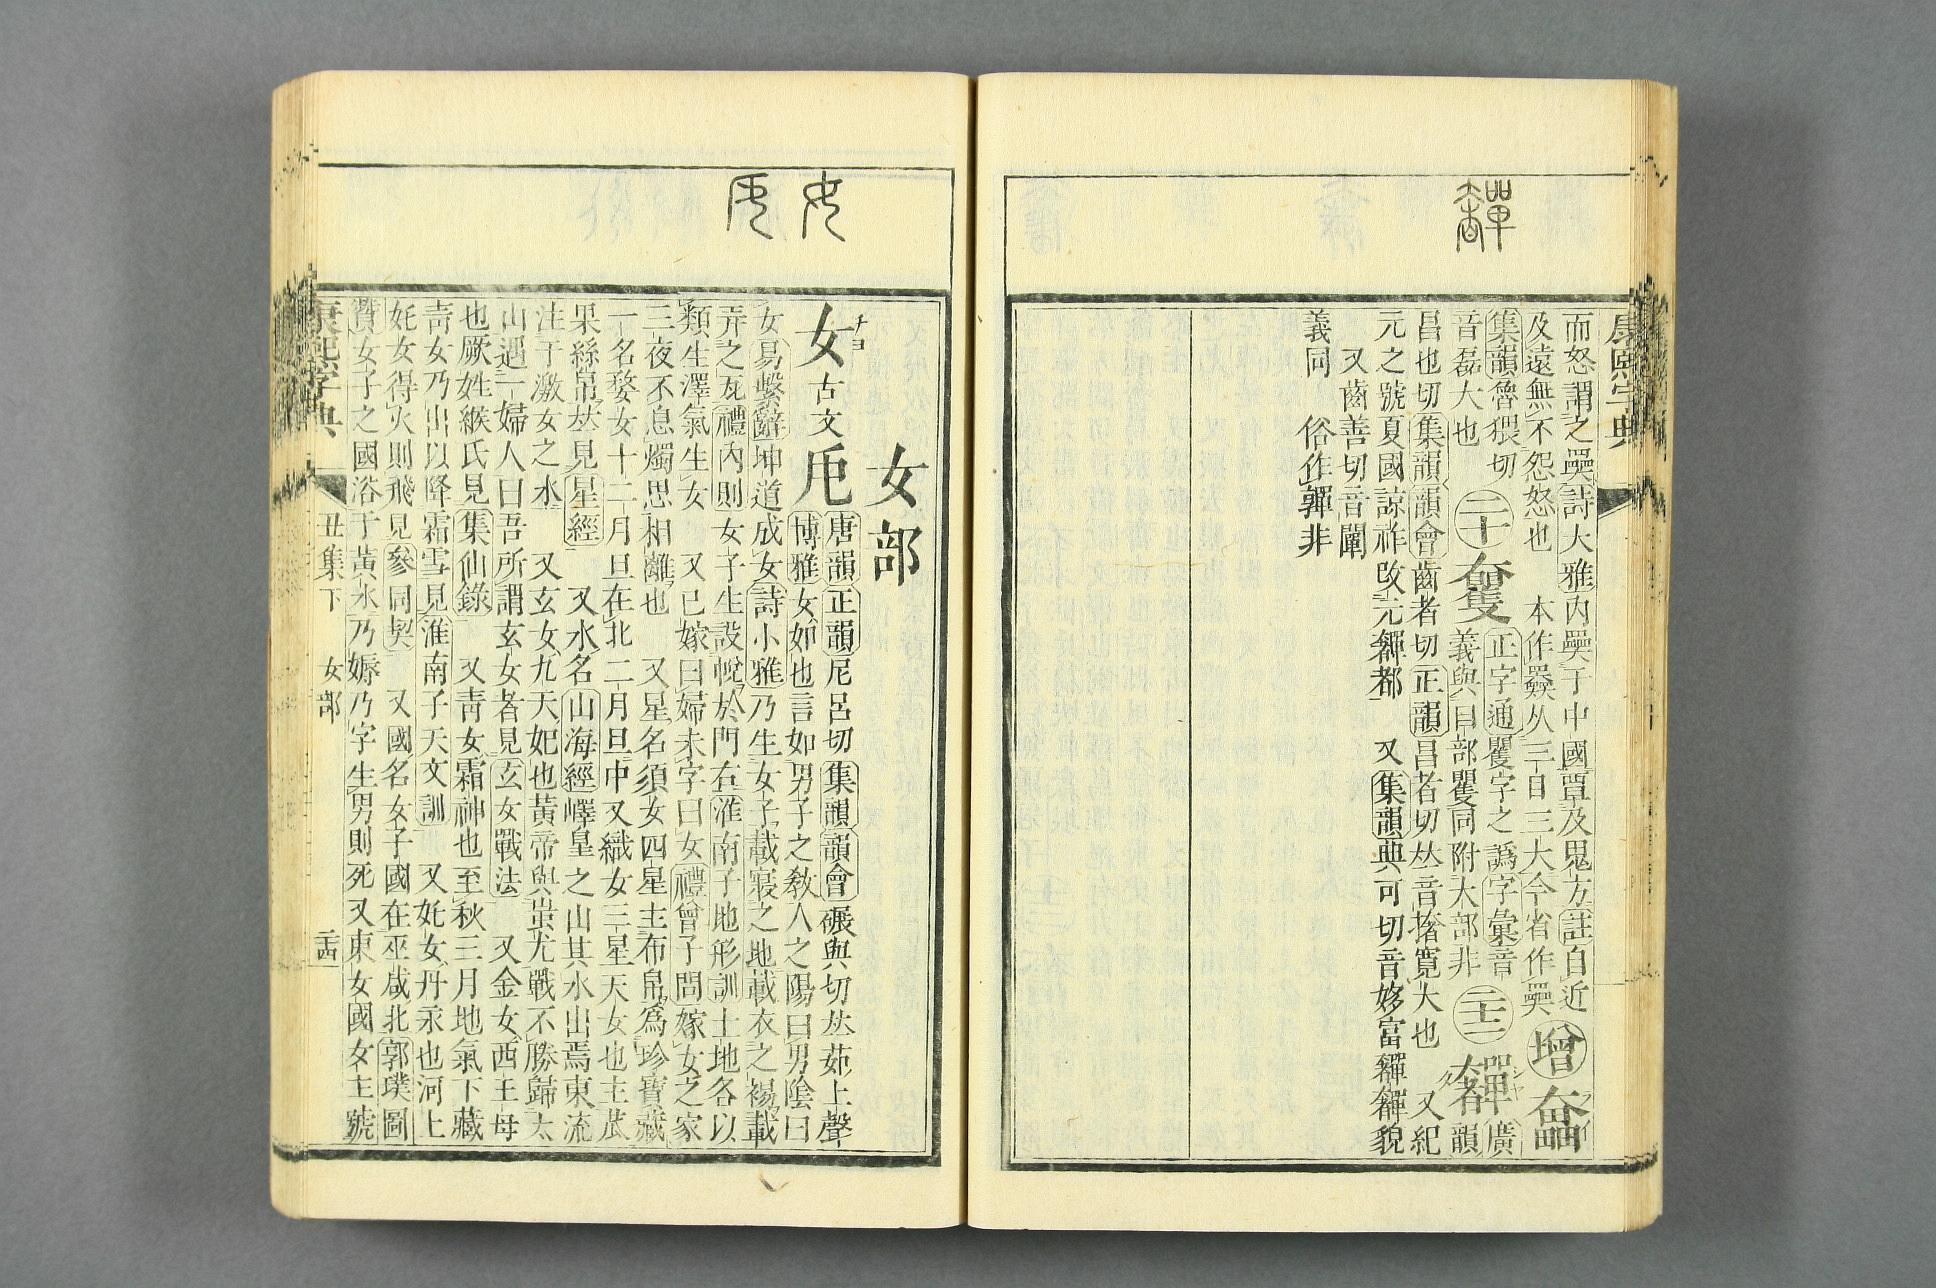 而怒謂之奰詩大雅內奰于中國覃及鬼方註自近
及遠無不怨怒也 本作㚌从三目三大今省作奰 增
集韻魯猥切音磊大也 二十 正字通矍字之譌字彙音
義與目部矍同附大部非 二十一 奲 廣韻
昌也切集韻韻會齒者切正韻昌者切𠀤音撦寬大也 又紀
元之號夏國諒祚改元奲都 又集韻典可切音嚲富奲奲貌
又齒善切音闡
義同 俗作軃非
康熙字典
女部
女 古文 唐韻正韻尼呂切集韻韻會碾與切𠀤茹上聲
博雅女如也言如男子之敎人之陽曰男陰曰
女易繫辭坤道成女詩小雅乃生女子載寢之地載衣之裼載
弄之瓦禮內則女子生設帨於門右淮南子地形訓土地各以
類生澤氣生女 又已嫁曰婦未字曰女禮曾子問嫁女之家
三夜不息燭思相離也 又星名須女四星主布帛爲珍寶藏
一名婺女十二月旦在北二月旦中又織女三星天女也主苽
果絲帛𠀤見星經 又水名山海經嶧皐之山其水出焉東流
注于激女之水 又玄女九天妃也黃帝與蚩尤戰不勝歸太
山遇一婦人曰吾所謂玄女者見玄女戰法 又金女西王母
也厥姓緱氏見集仙錄 又靑女霜神也至秋三月地氣下藏
靑女乃出以降霜雪見淮南子天文訓 又奼女丹汞也河上
奼女得火則飛見參同契 又國名女子國在巫咸北郭璞圖
贊女子之國浴于黃水乃娠乃字生男則死又東女國女主號
康熙字典 丑集下 女部 二十四